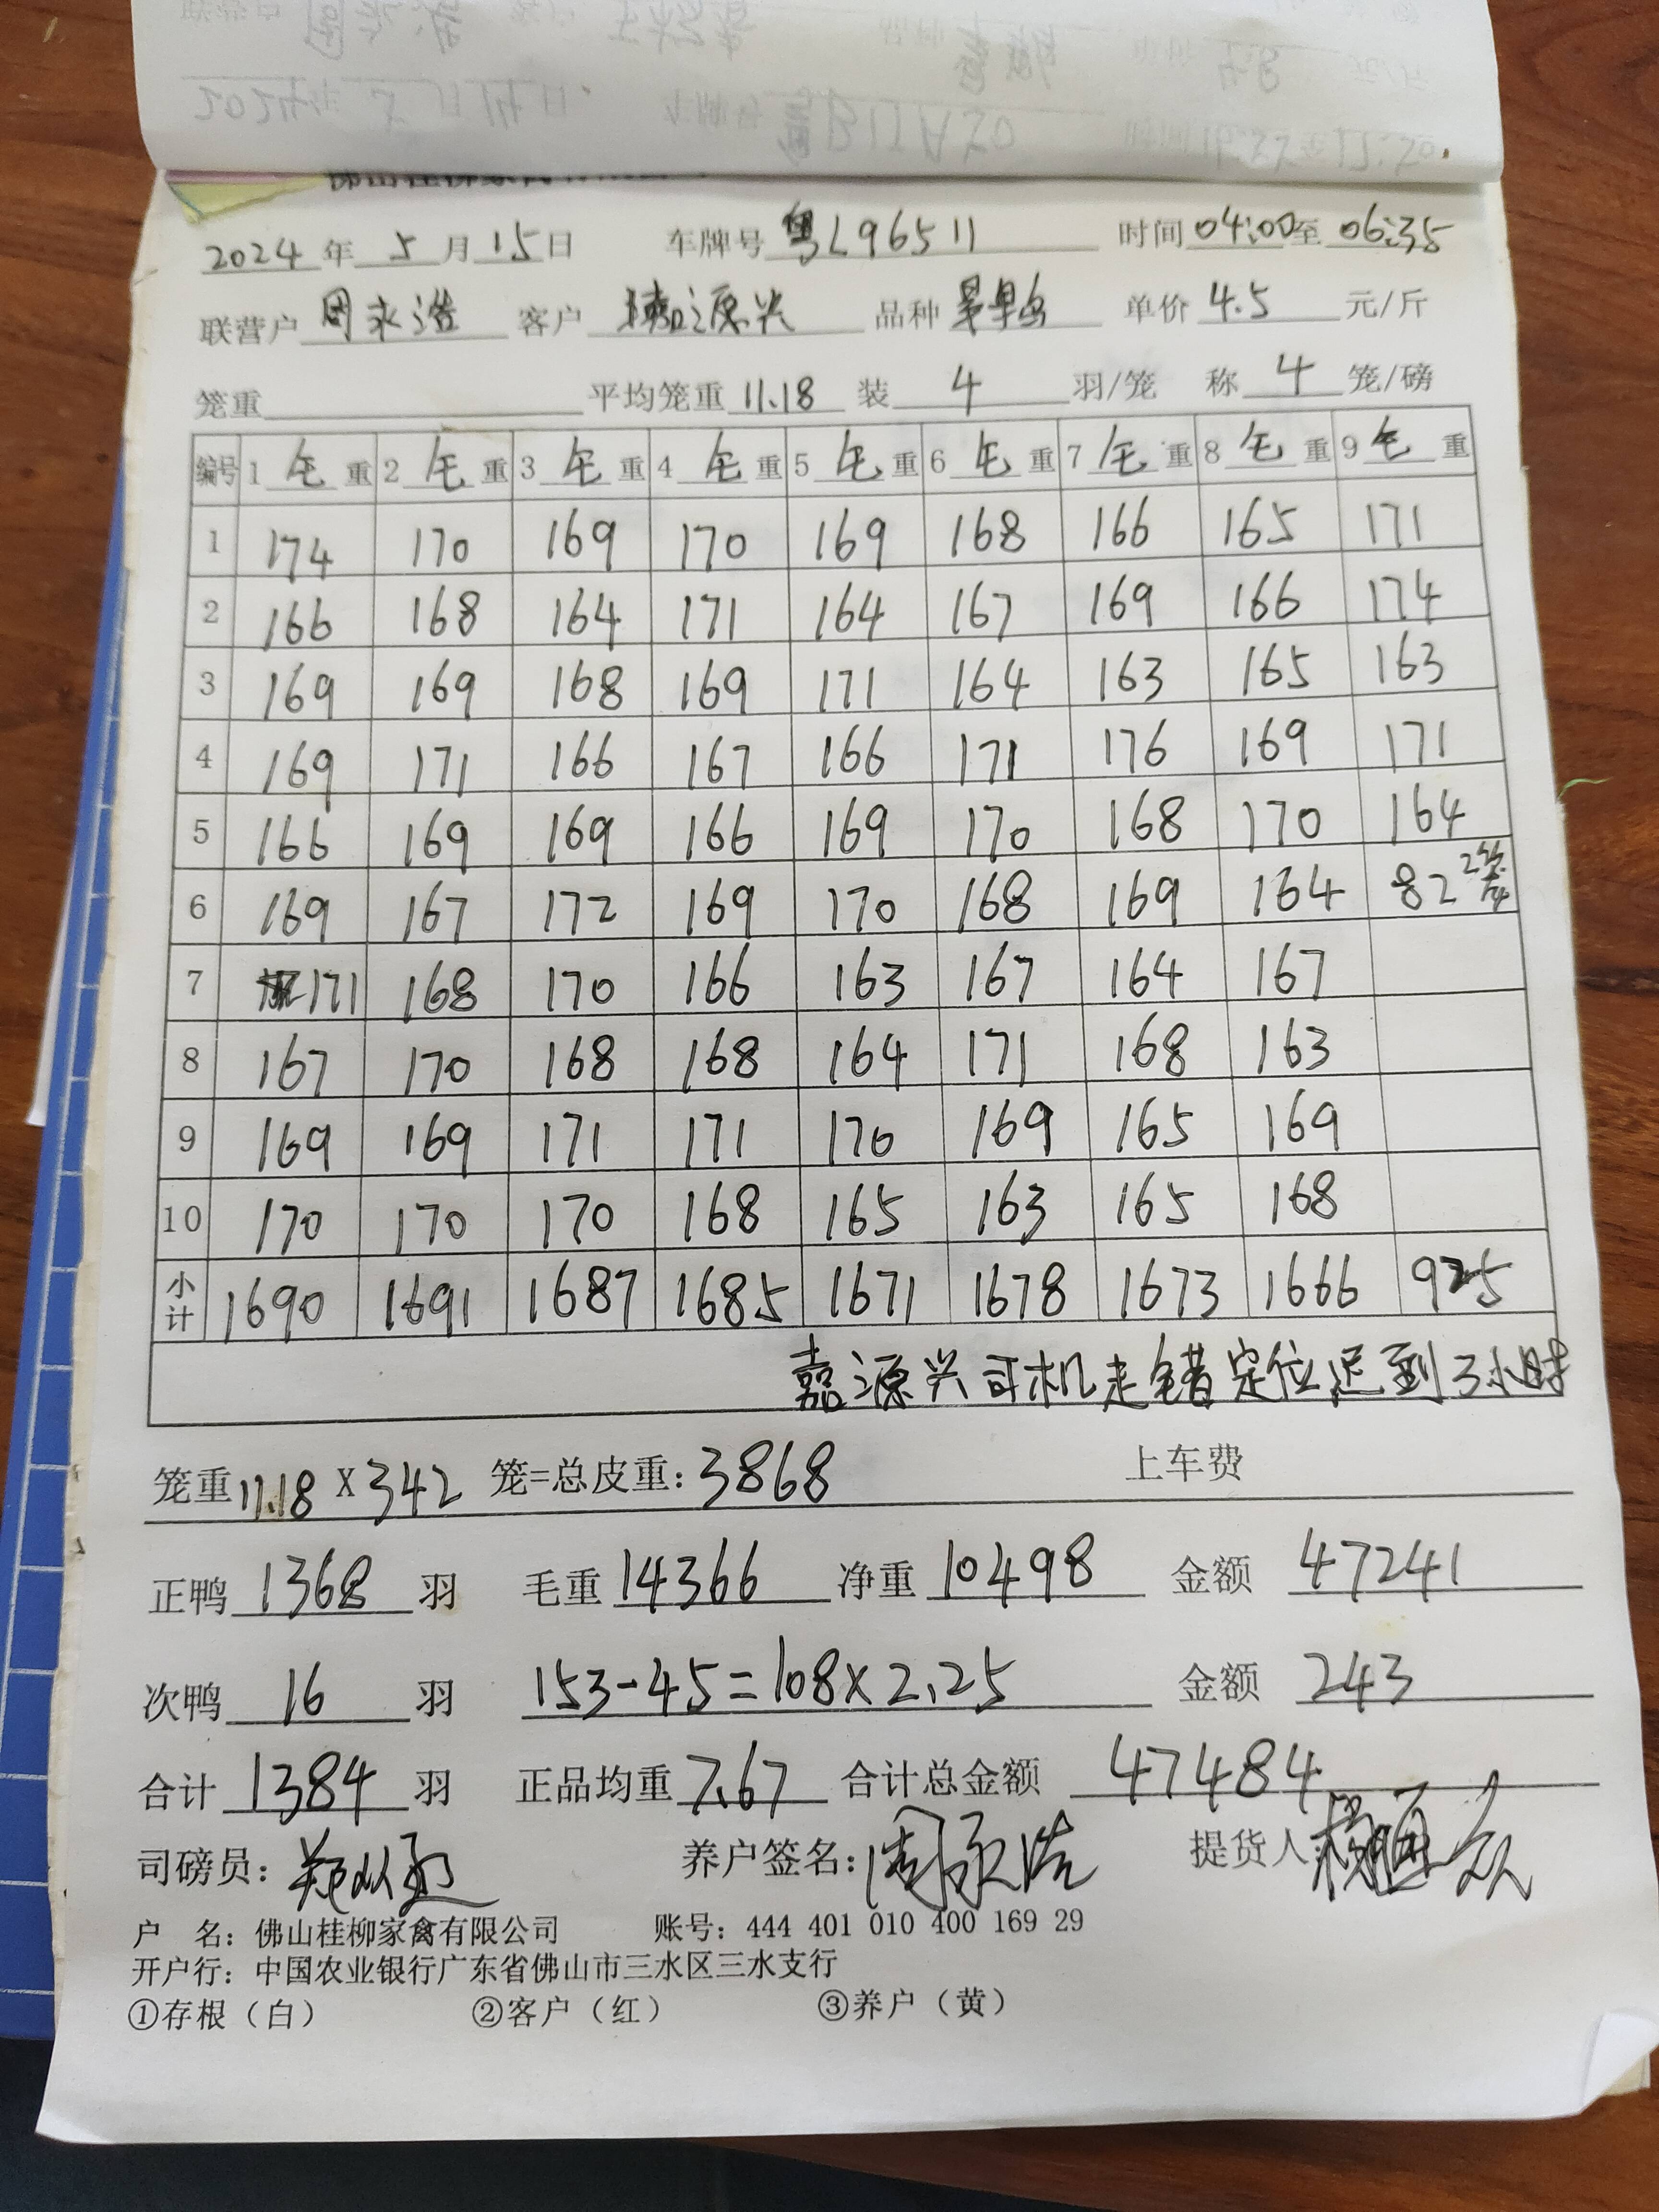 2024年5月15日 车牌号粤L96511 时间04:00至06:35
联营户周永浩 客户嘉源兴 品种 单价4.5元/斤
笼重 平均笼重11.18 装4羽/笼 称4笼/磅
编号 1毛重 2毛重 3毛重 4毛重 5毛重 6毛重 7毛重 8毛重 9毛重
1 174 170 169 170 169 168 166 165 171
2 166 168 164 171 164 167 169 166 174
3 169 169 168 169 171 164 163 165 163
4 169 171 166 167 166 171 176 169 171
5 166 169 169 166 169 170 168 170 164
6 169 167 172 169 170 168 169 164 82 2笼
7 171 168 170 166 163 167 164 167
8 167 170 168 168 164 171 168 163
9 169 169 171 171 170 169 165 169
10 170 170 170 168 165 163 165 168
小计 1690 1691 1687 1685 1671 1678 1673 1666 925
嘉源兴司机走错定位迟到3小时
笼重11.18X342笼=总皮重:3868 上车费
正鸭1368羽 毛重14366 净重10498 金额47241
次鸭16羽 153-45=108×2.25 金额243
合计1384羽 正品均重7.67 合计总金额47484
司磅员: 养户签名:周永浩 提货人
户 名:佛山桂柳家禽有限公司 账号:444 401 010 400 169 29
开户行:中国农业银行广东省佛山市三水区三水支行
①存根（白） ②客户（红） ③养户（黄）